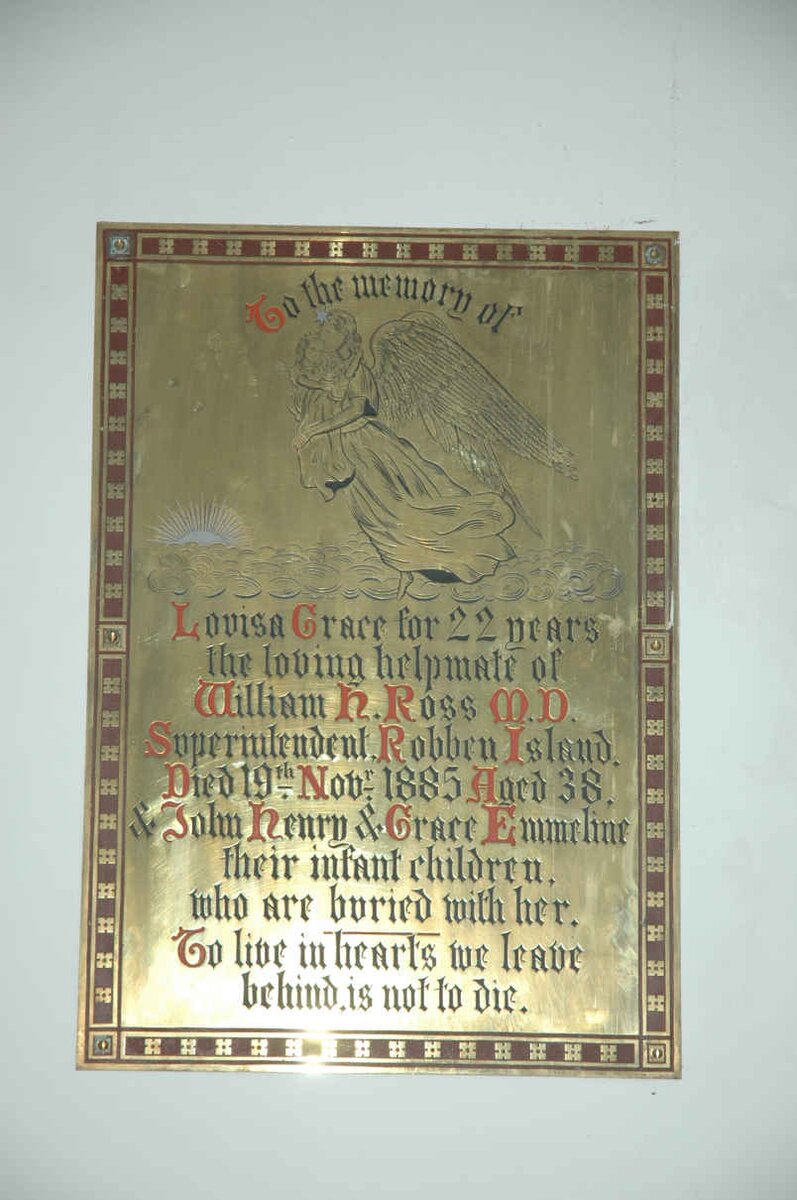 To the memory of
Lovisa Grace for 22 years
the loving helpmate of
William H. Ross M.D.
Superintendent, Robben Island.
Died 19th Novr 1885 Aged 38.
& John Henry & Grace Emmeline
their infant children.
who are buried with her.
To live in hearts we leave
behind, is not to die.